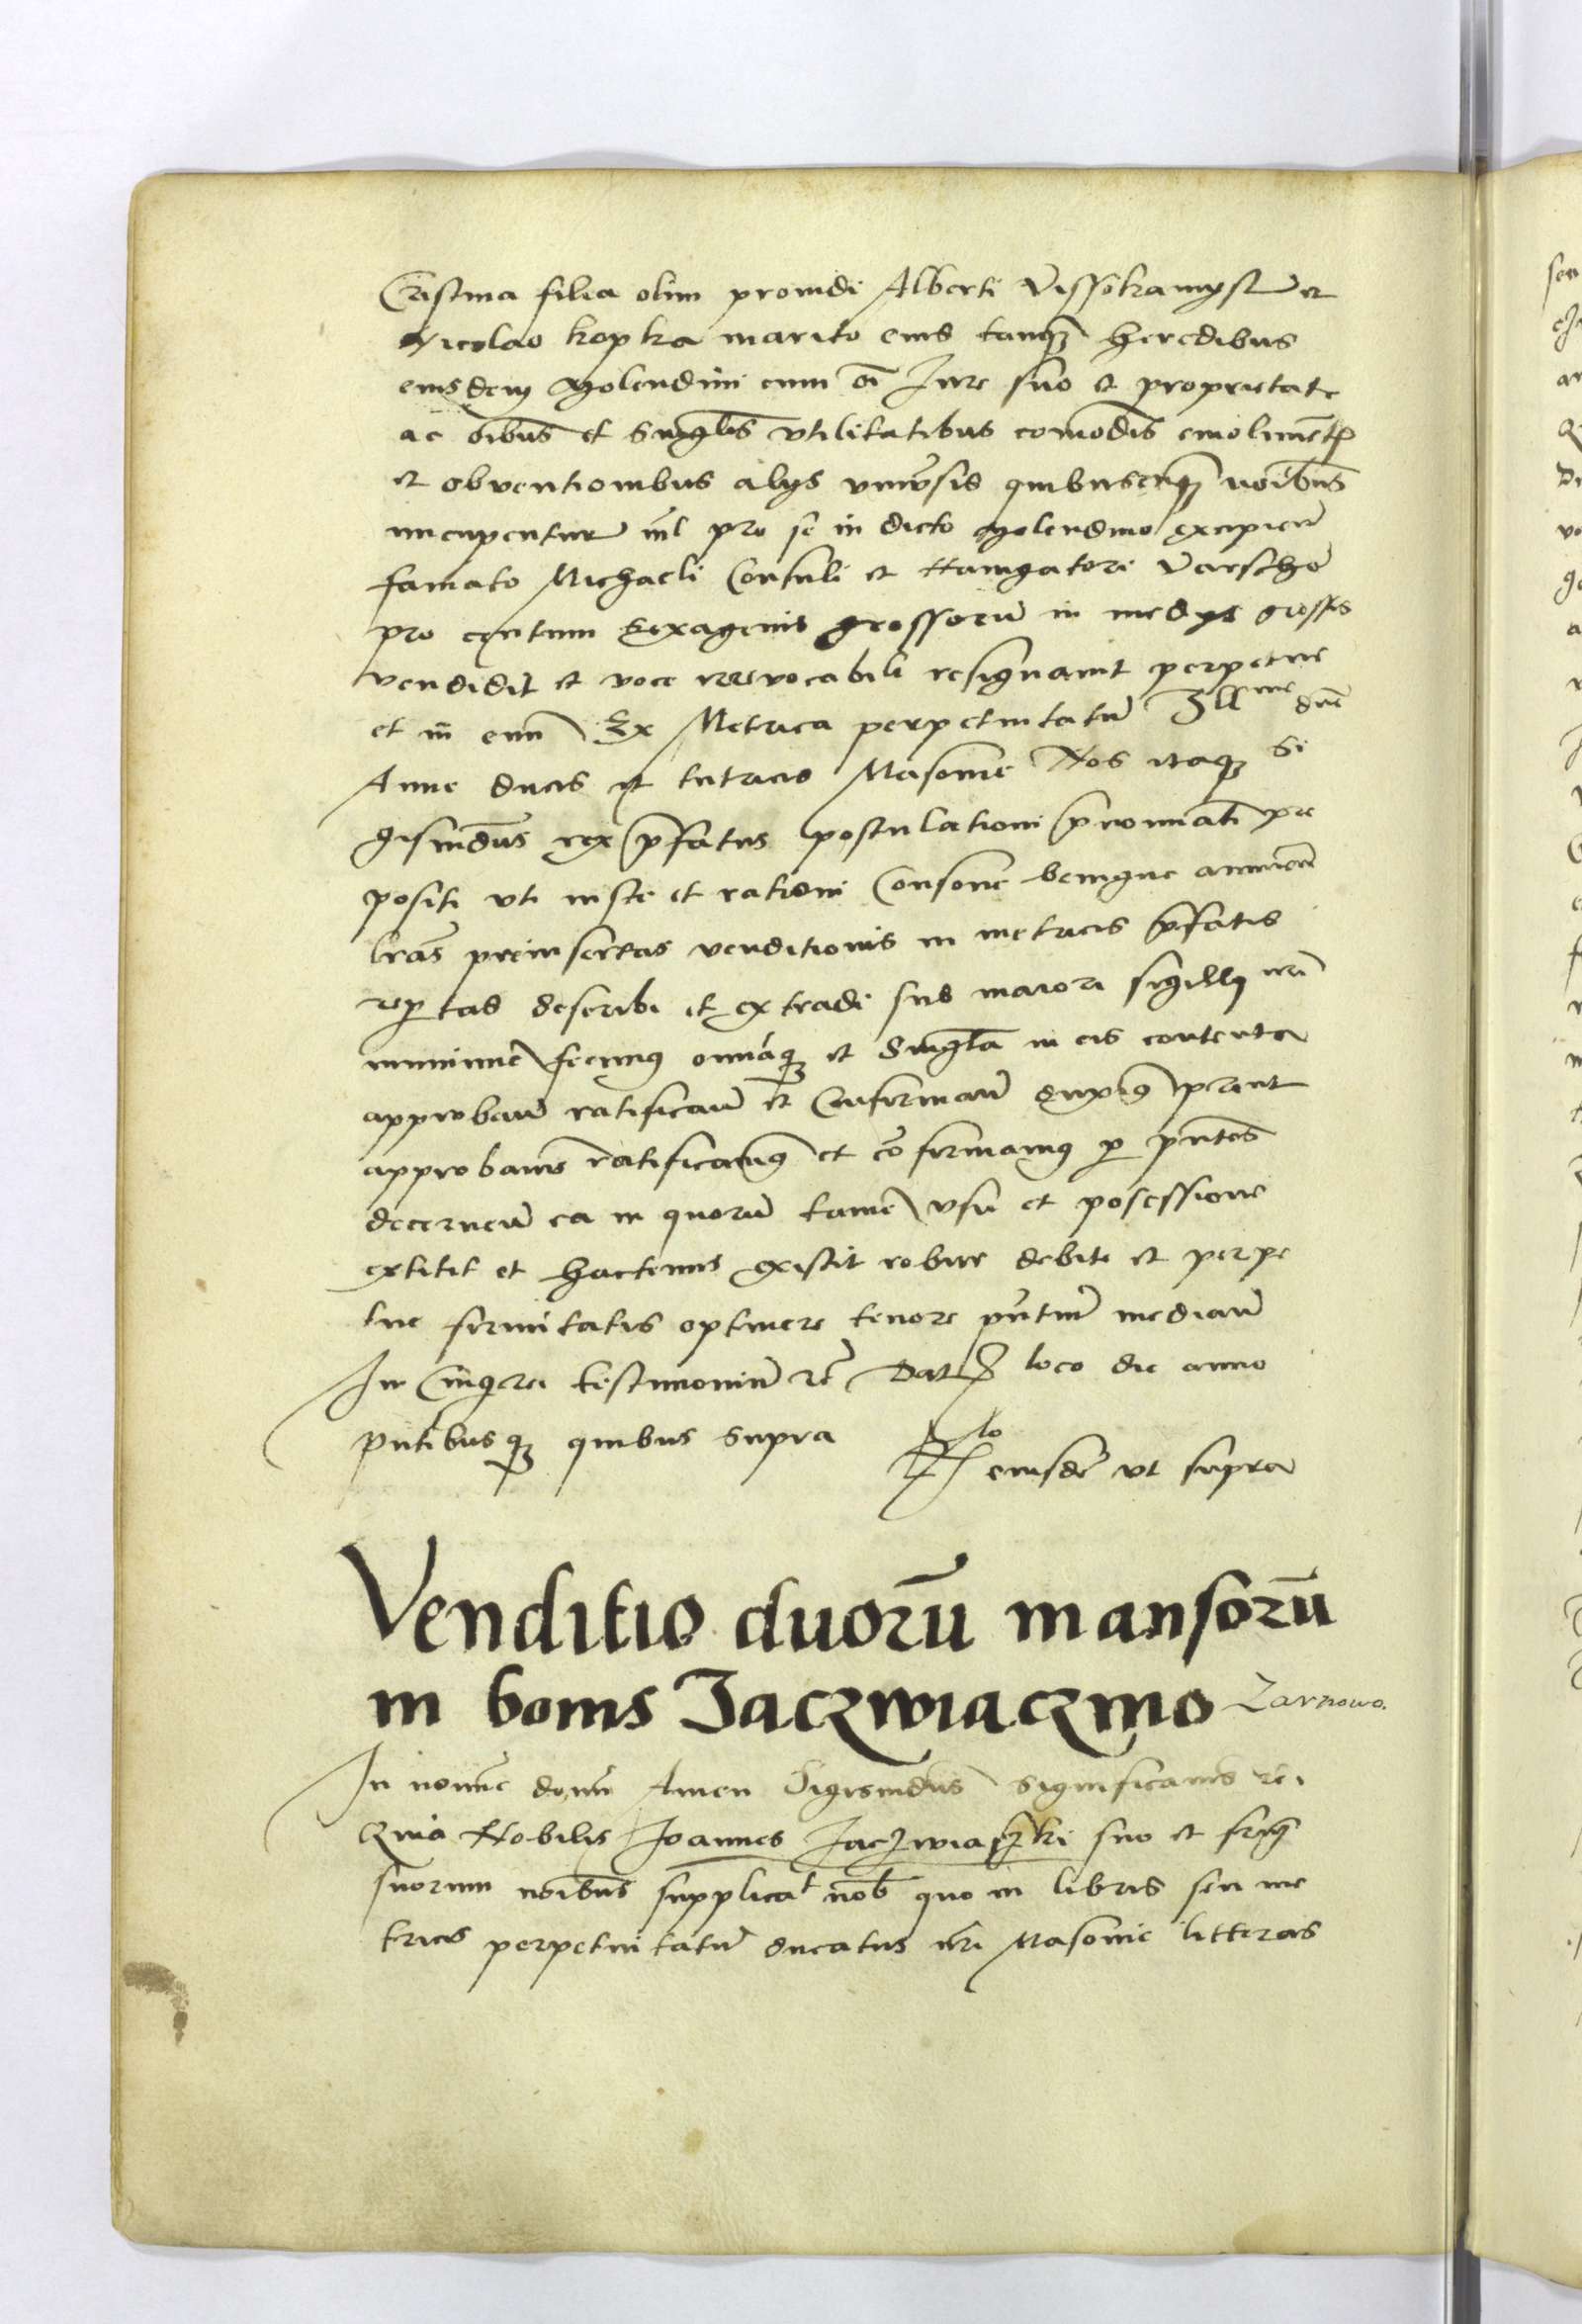 Cristina filia olim prouidi Alberti Vissokamyssl et
Nicolao kopka marito eius tanq̃ heredibus
eiusdem Molendini cum oĩ Iure suo et proprietate
ac oĩbus et singlis vtilitatibus comodis emolimẽt
et obuentionibus alijs vniũsis quibuscũq noĩbus
nuncupentur nil pro se in dicto Molendino excipien̄
famato Michaeli Consuli et Nauigatori Varschoѣ
pro centum Sexagenis grossorũ in medijs grossis
vendidit et voce irreuocabili resignauit perpetue
et in eun̄ Ex Metrica perpetuitatũ Illme dñe
Anne ducis et tutricis Masouie Nos itaq Si
gismũdus rex p̃fatus postulationi p̃nominati pre
positi vti iuste et rationi Consone benigne annuen̄
lr̃as preinsertas venditionis in metricis p̃fatis
repertas describi et extradi sub maiori sigilli nr̃i
munimine fecimus omniaq et Singla in eis contenta
approban̄ ratifican̄ et Confirman̄ duximus prout
approbamus ratificamus et cõfirmamus per p̃ntes
decernen̄ ea in quorũ tamẽ vsu et posessione
extitit et hactenus existit robur debite et perpe
tue firmitatis optinere tenore p̃ntiũ median̄
In Cuius rei testimoniũ rc̃ Dat loco die anno
p̃ntibusq quibus supra
Rlo eiusdẽ vt supra
Venditio duorũ mansorũ
in bonis Jaczwiaczino Zarnowo.
In nomine domĩ Amen Sigismũdus Significamus rc̃
Quia Nobilis Joannes Jaczwiaszki suo et frũ
suorum noĩbus supplicat nob̃ quo in libris seu me
tricis perpetuitatũ ducatus nr̃i Masouie litteras